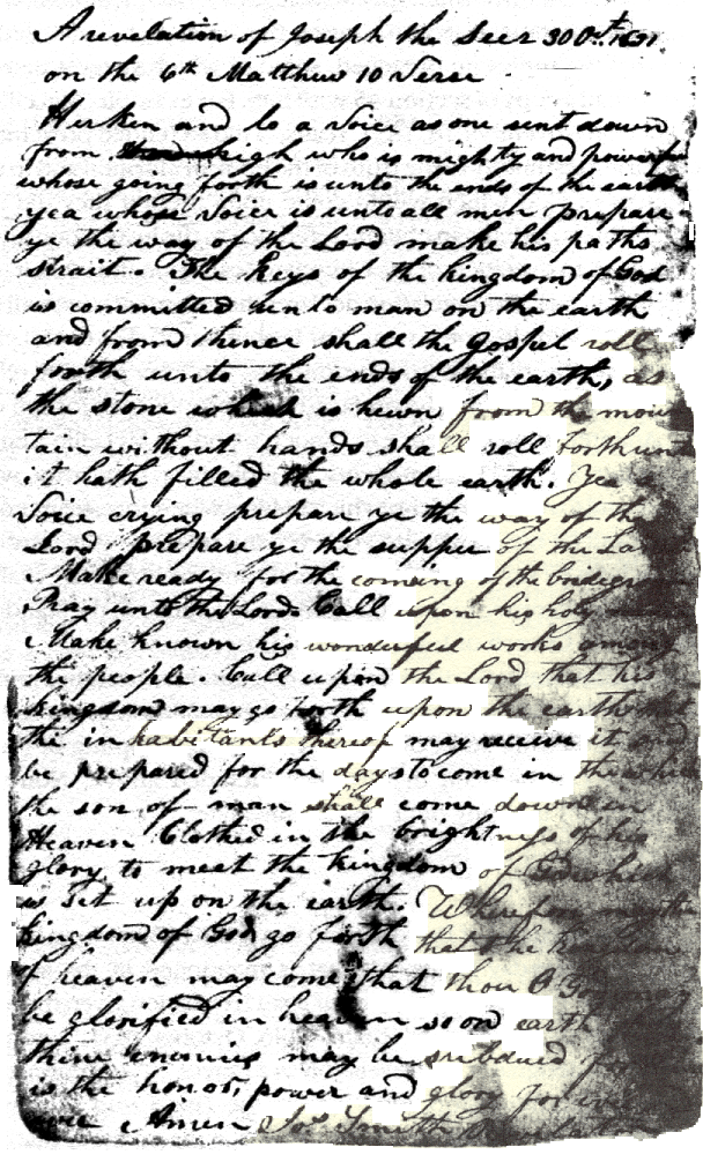 A revelation of Joseph the Seer 30 Oct. 1831
on the 6th Matthew 10 Verse
Herken and lo a Voice as one sent down
from high who is mighty and powerful
whose going forth is unto the ends of the earth
yea whose Voice is unto all men prepare
ye the way of the Lord make his paths
strait. The keys of the kingdom of God
is committed unto man on the earth
and from thence shall the Gospel roll
forth unto the ends of the earth, as
the stone which is hewn from the moun
tain without hands shall roll forth unt
it hath filled the whole earth. Yea a
Voice crying prepare ye the way of the
Lord prepare ye the supper of the La
Make ready for the comeing of the bridegroom
Pray unto the Lord. Call upon his holy
Make known his wonderful works among
the people. Call upon the Lord that his
kingdom may go forth upon the earth that
the inhabitants thereof may receive it and
be prepared for the days to come in the which
the son of man shall come down in
Heaven Clothed in the brightness of his
glory to meet the kingdom of God which
is set up on the earth. Wherefore may the
kingdom of God go forth that the kingdom
of heaven may come that thou O God may
be glorified in heaven so on earth
thine enemies may be subdued for
is the honor, power and glory for ever
Amen Jos. Smith